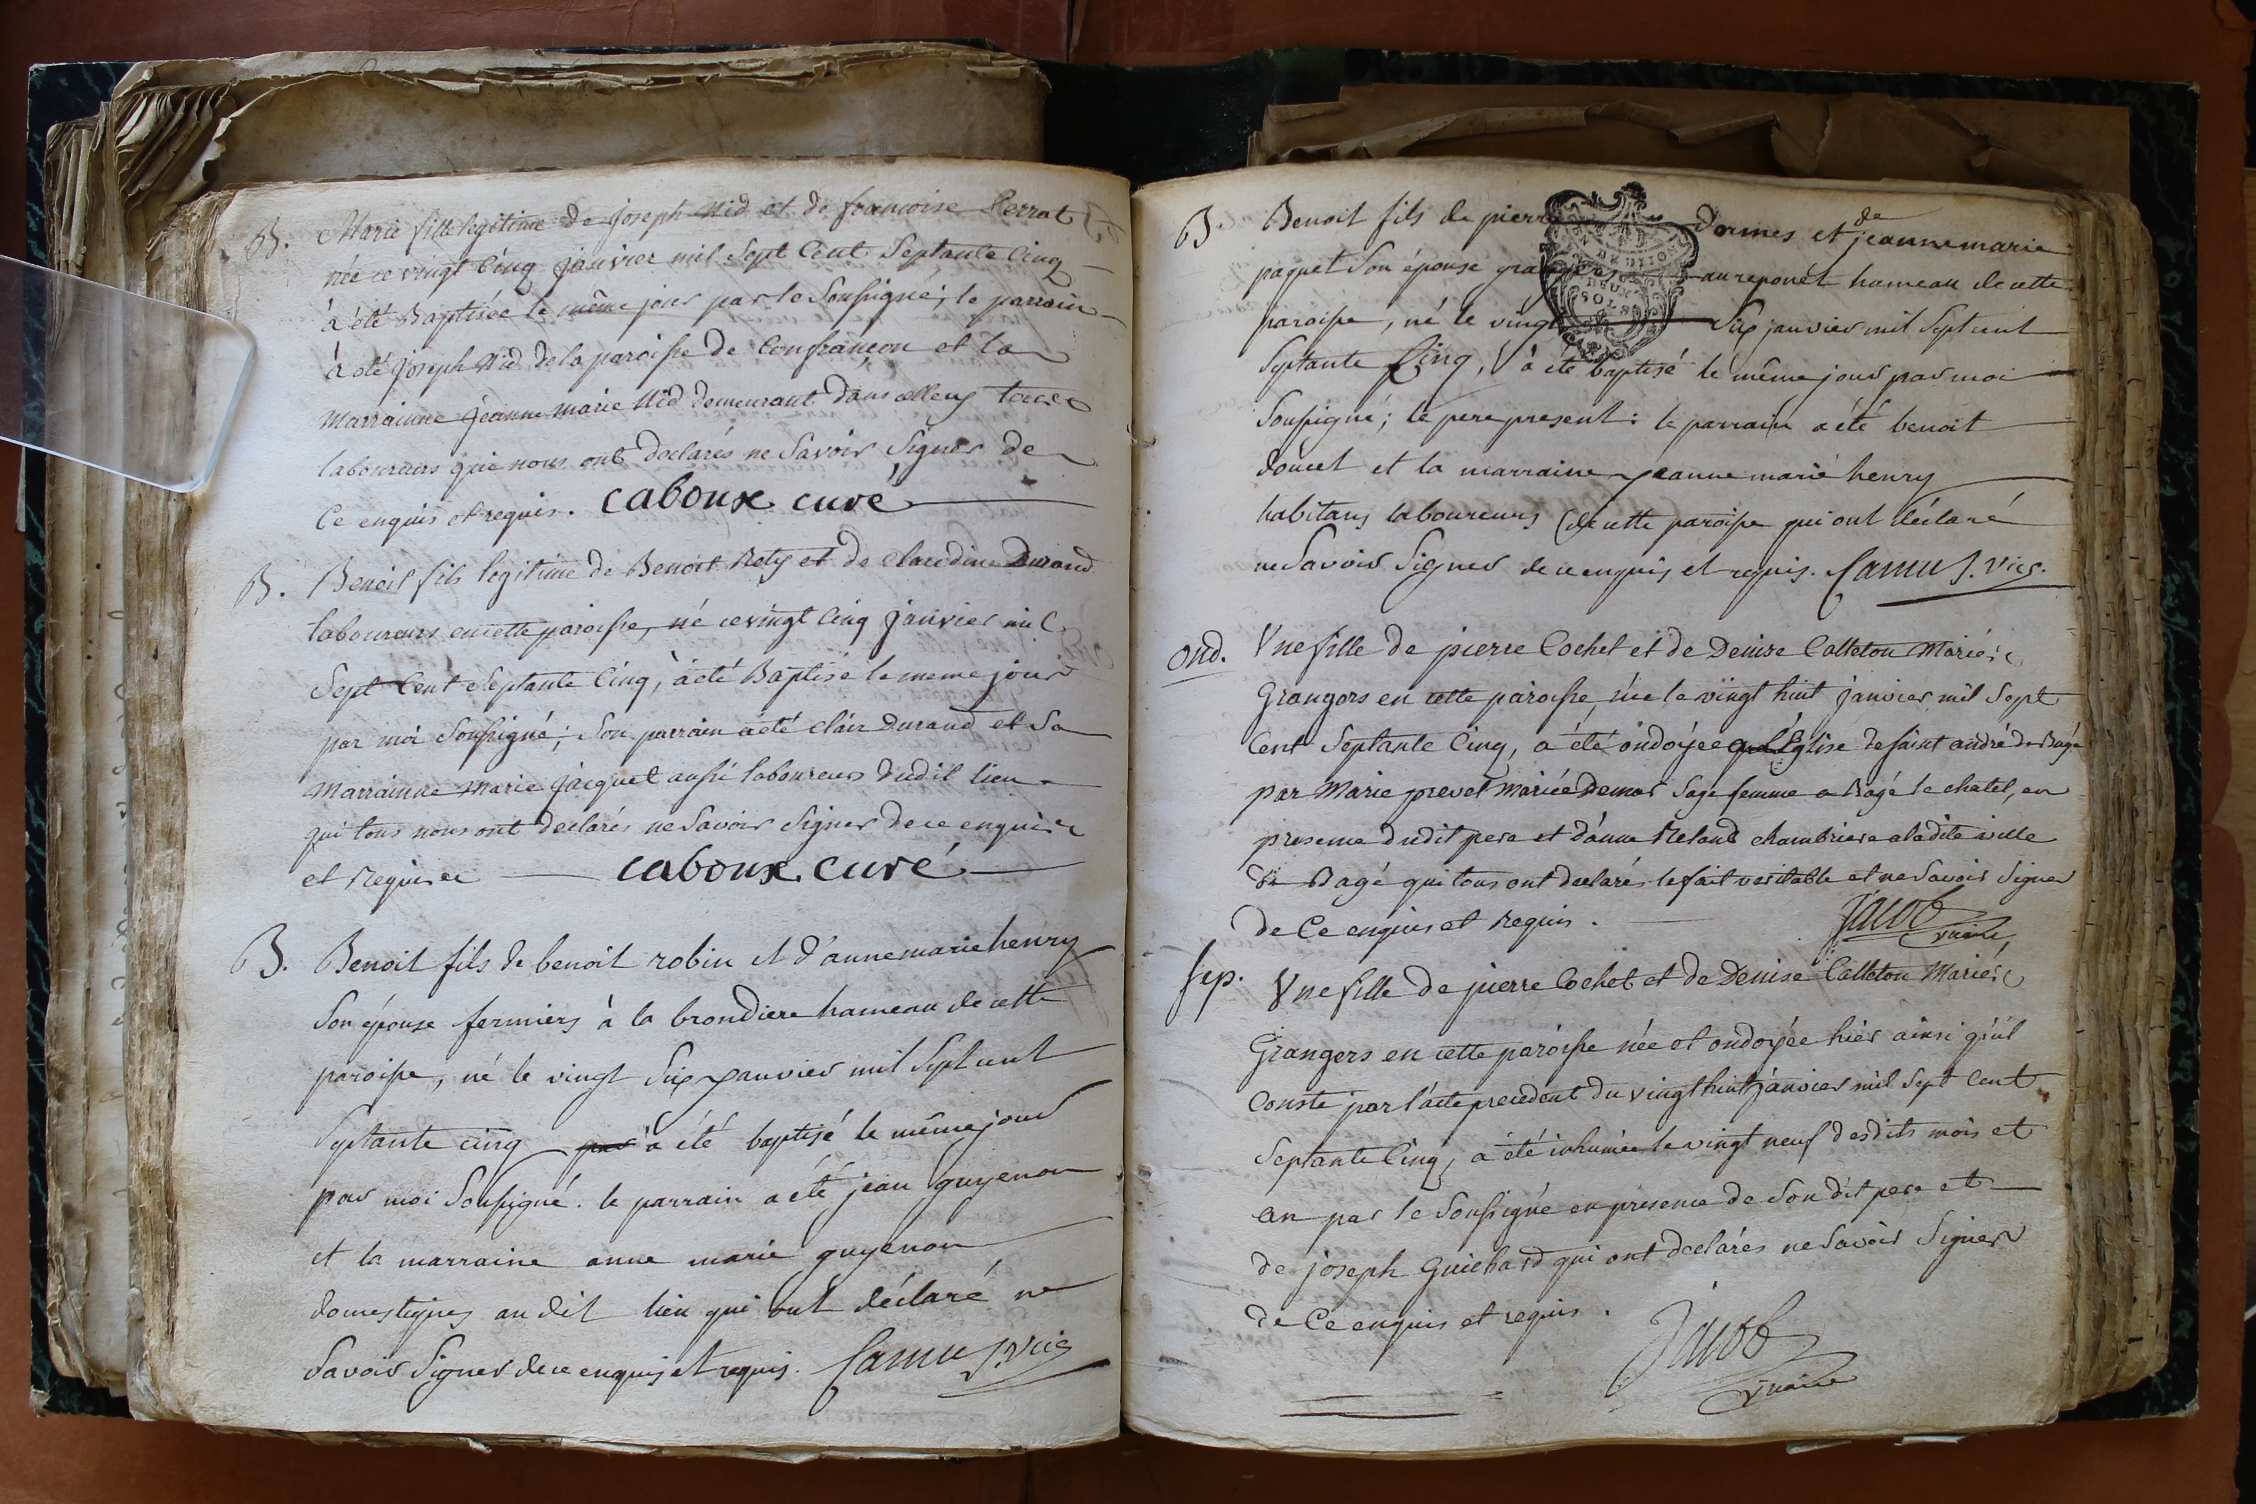 B. Marie fille legitime de Joseph Nid et de francoise Perrat
née ce vingt Cinq janvier mil Sept Cent Septante Cinq
à été Baptisée le même jour par le Soussigné; le parrain
à été Joseph Nid de la paroisse de Confrançon et la
marrainne jeanne marie Nid demeurant dans celle cy tous
laboureurs qui nous ont declarés ne Savoir Signer de
Ce enquis et requis. caboux curé
B. Benoit fils legitime de Benoit Rety et de Claudine Durand
laboureurs en cette paroisse, né ce vingt Cinq janvier mil
Sept Cent Septante Cinq, à été Baptisé le meme jour
par moi Soussigné; Son parrain a été Clair Durand et Sa
marrainne marie jacquet aussi laboureurs dudit lieu
qui tous nous ont declarés ne Savoir Signer de ce enquis
et Requis caboux curé
B. Benoit fils de benoit robin et d'anne marie henry
Son épouse fermiers à la brondiere hameau de cette
paroisse, né le vingt Six janvier mil Sept cent
Septante cinq par a été baptisé le même jour
par moi Soussigné. le parrain a été jean guyenon
et la marraine anne marie guyenon
domestiques au dit lieu qui ont déclaré ne
Savoir Signer de ce enquis et requis. Camus. vic.
B. Benoit fils de pierre dormes et de jeanne marie
paquet Son épouse grangers au hameau de cette
paroisse, né le vingt Six janvier mil Sept cent
Septante Cinq, à été baptisé le même jour par moi
Soussigné; le pere present: le parrain a été benoit
doucet et la marraine jeanne marie henry
habitans laboureurs de cette paroisse qui ont déclaré
ne Savoir Signer de ce enquis et requis. Camus. vic.
ond. Une fille de pierre Cochet et de Denise Calleton Mariés
Grangers en cette paroisse, née le vingt huit janvier mil Sept
Cent Septante Cinq, a été ondoyée Église de saint andré de Bagé
par Marie prevet mariée Demas Sage femme a Bagé le chatel, en
presence dudit pere et d'anne Reland chambriere a ladite ville
de Bagé qui tous ont declarés le fait veritable et ne Savoir Signer
de Ce enquis et Requis. Jacob
vicaire
sep. Une fille de pierre Cochet et de Denise Calleton Mariés
Grangers en cette paroisse née et ondoyée hier ainsi qu'il
Conste par l'acte precedent du vingt huit janvier mil Sept Cent
Septante Cinq, a été inhumée le vingt neuf desdits mois et
an par le Soussigné en presence de Son dit pere et
de joseph Guichard qui ont declarés ne Savoir Signer
de Ce enquis et requis. Jacob
vicaire